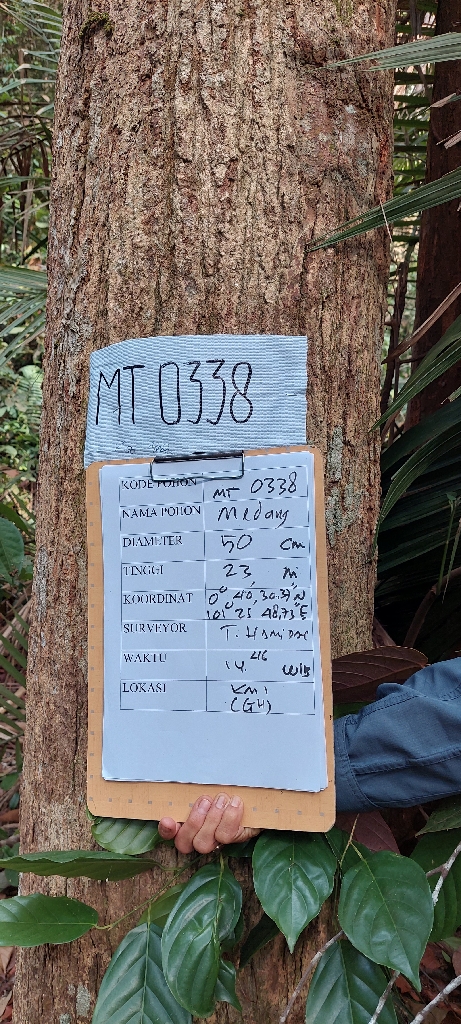 MT 0338
KODE POHON MT 0338
NAMA POHON Medang
DIAMETER 50 cm
TINGGI 23, m,
KOORDINAT 0° 40, 30.37 N
101° 25 48,73 E
SURVEYOR T.
WAKTU 14.46 WIB
LOKASI KM 1
(GH)